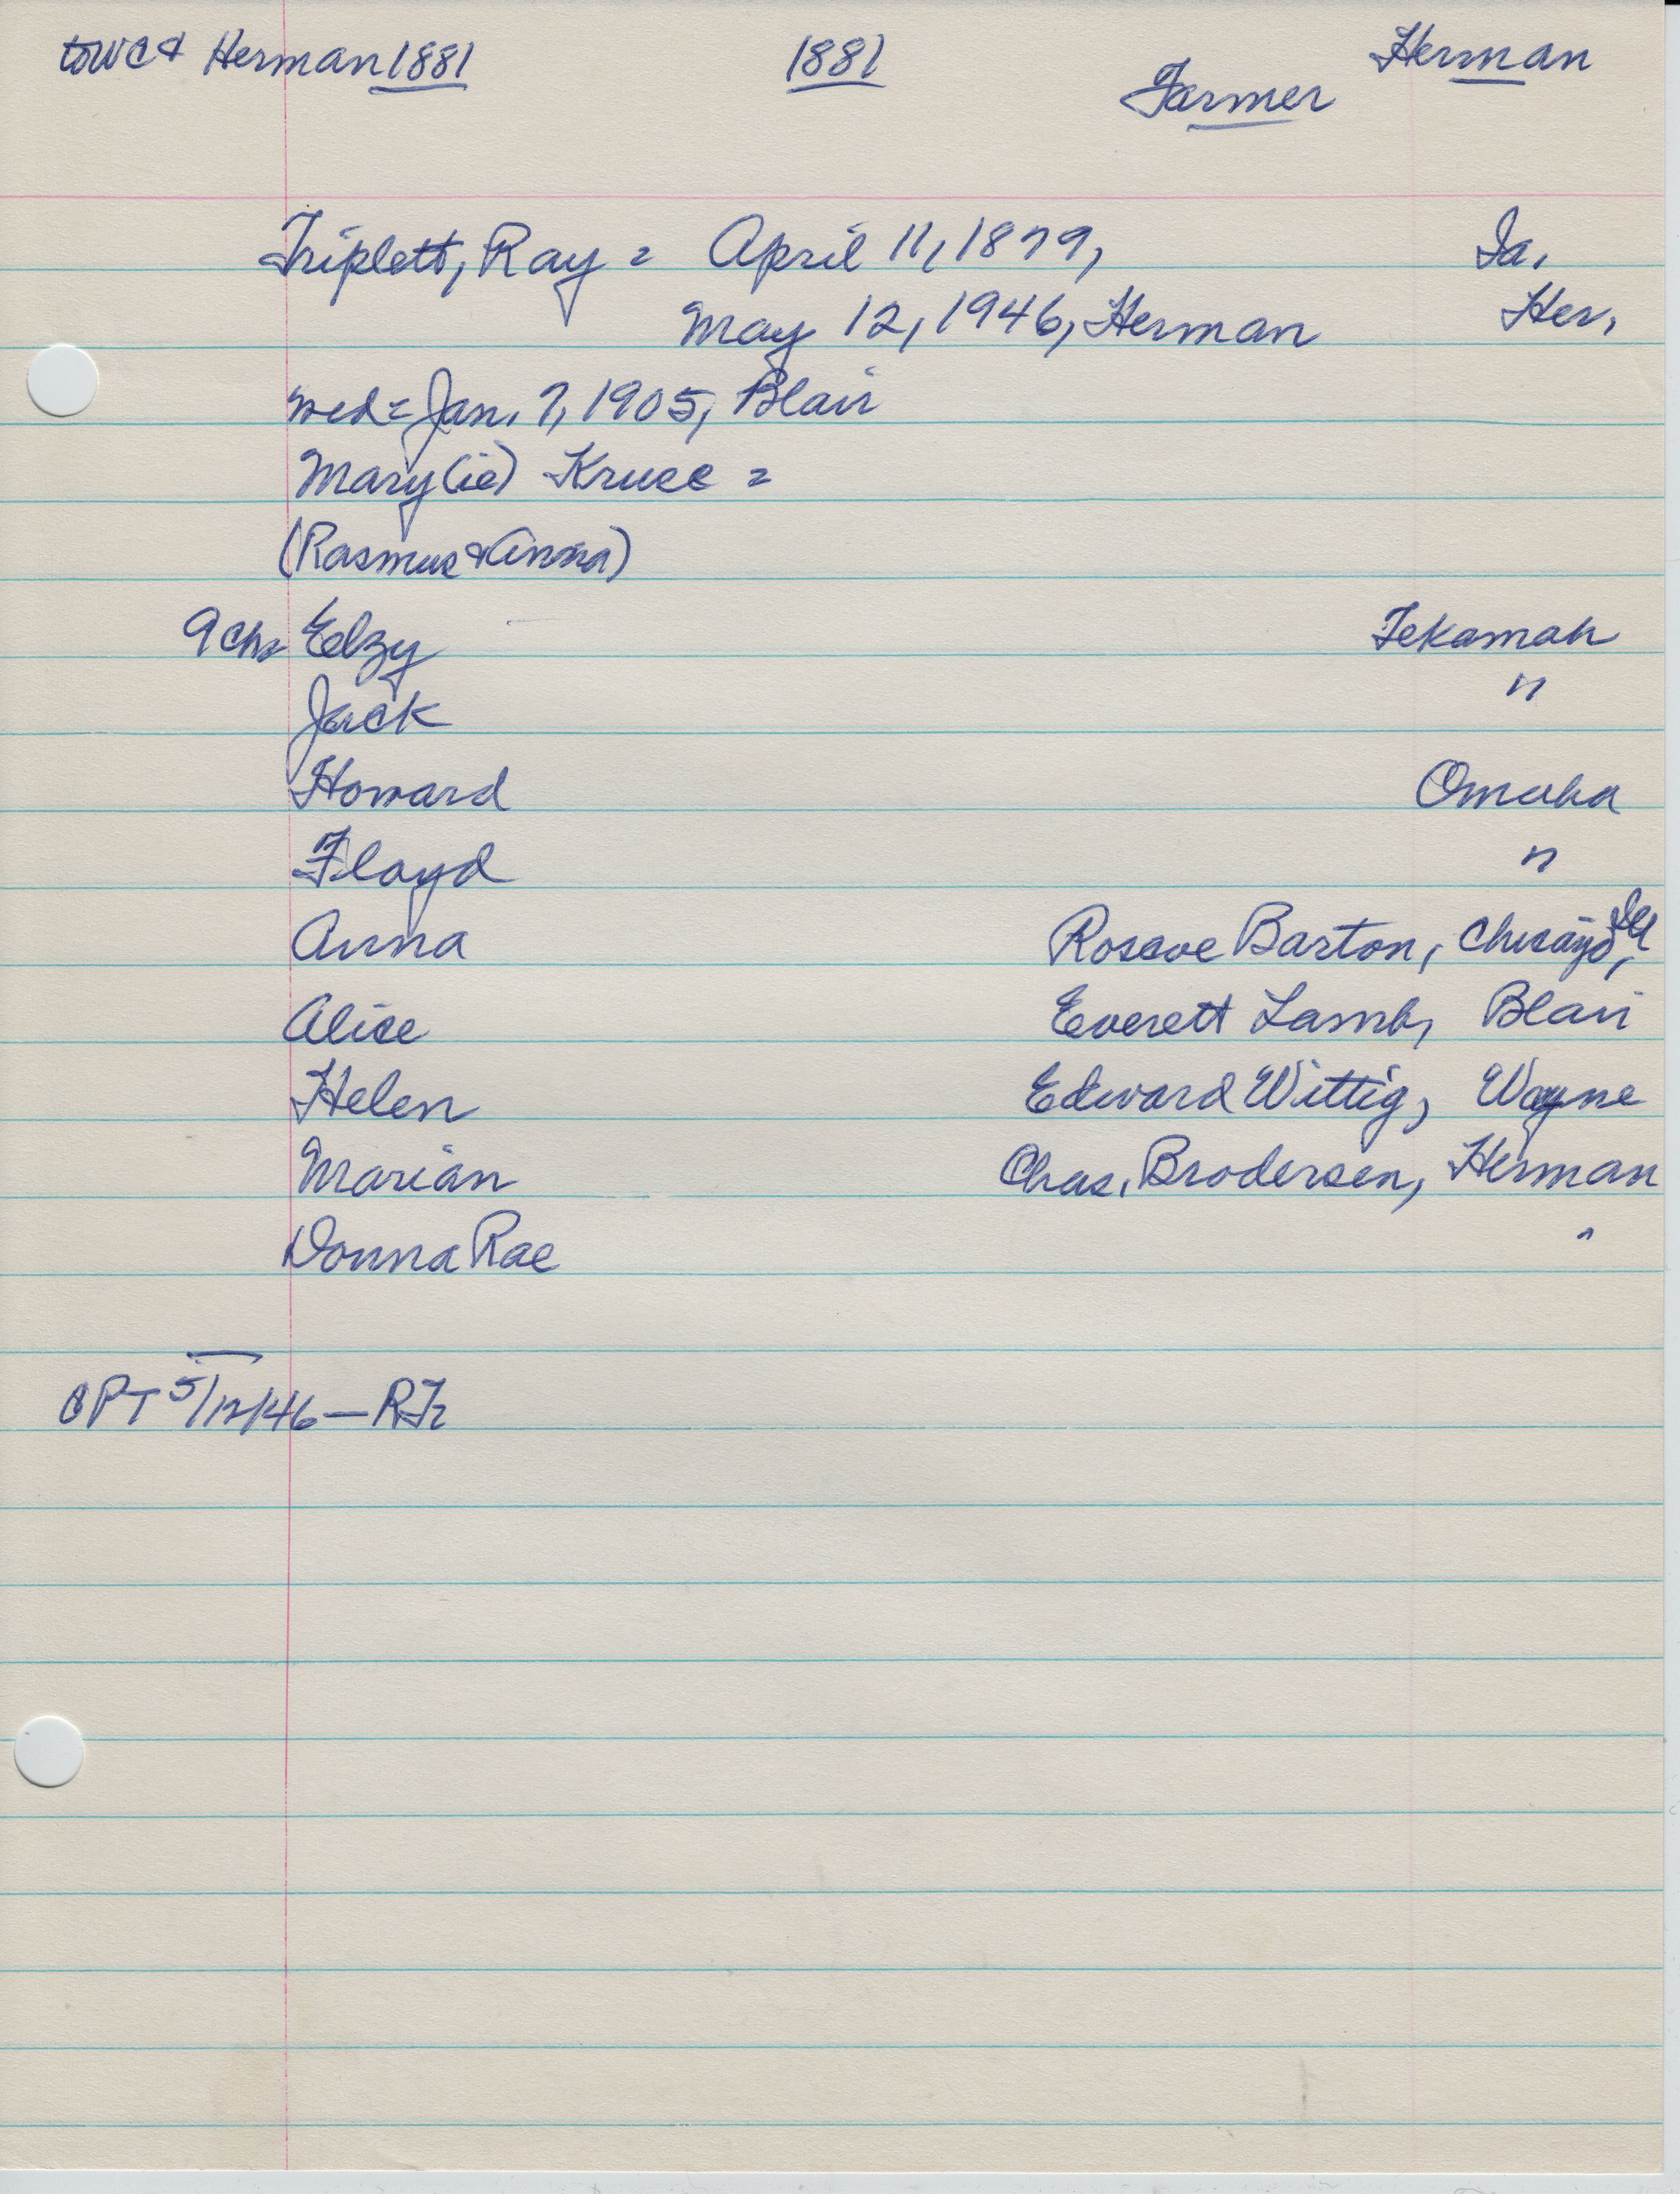 to WC & Herman 1881 1881 Herman
Farmer
Triplett, Ray = April 11, 1879, Ia.
May 12, 1946, Herman Her.
wed = Jan. 7, 1905, Blair
Mary(ie) Kruse =
(Rasmus & Anna)
9 chs Edzy Tekamah
Jack "
Howard Omaha
Floyd "
Anna Roscoe Barton, Chicago, Ill
Alice Everett Lamb, Blair
Helen Edward Wittig, Wayne
Marian Chas. Brodersen, Herman
Donna Rae "
CPT 5/12/46 — RTr